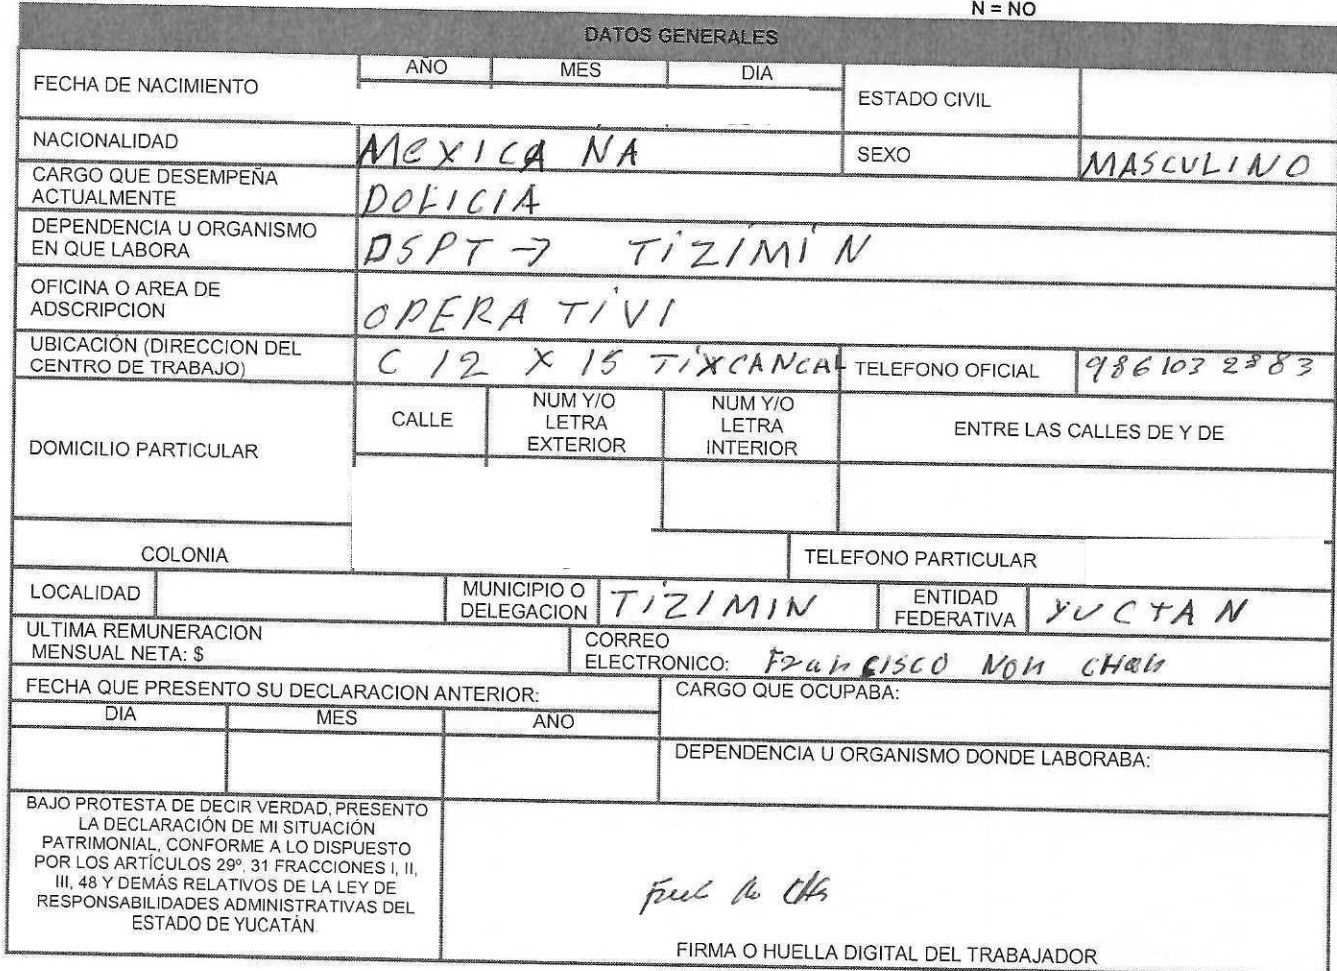 N = NO
DATOS GENERALES
FECHA DE NACIMIENTO
AÑO MES DIA
ESTADO CIVIL
NACIONALIDAD MEXICA NA SEXO MASCULINO
CARGO QUE DESEMPEÑA
ACTUALMENTE POLICIA
DEPENDENCIA U ORGANISMO
EN QUE LABORA DSPT → TIZIMIN
OFICINA O AREA DE
ADSCRIPCION OPERA TIVI
UBICACIÓN (DIRECCION DEL
CENTRO DE TRABAJO) C 12 X 15 TIXCANCAL TELEFONO OFICIAL 986103 2883
DOMICILIO PARTICULAR
CALLE
NUM Y/O
LETRA
EXTERIOR
NUM Y/O
LETRA
INTERIOR
ENTRE LAS CALLES DE Y DE
COLONIA TELEFONO PARTICULAR
LOCALIDAD
MUNICIPIO O
DELEGACION TIZIMIN
ENTIDAD
FEDERATIVA YUCTAN
ULTIMA REMUNERACION
MENSUAL NETA: $
CORREO
ELECTRONICO: Francisco Noh CHan
FECHA QUE PRESENTO SU DECLARACION ANTERIOR:
DIA MES AÑO
CARGO QUE OCUPABA:
DEPENDENCIA U ORGANISMO DONDE LABORABA:
BAJO PROTESTA DE DECIR VERDAD, PRESENTO
LA DECLARACIÓN DE MI SITUACIÓN
PATRIMONIAL, CONFORME A LO DISPUESTO
POR LOS ARTÍCULOS 29º, 31 FRACCIONES I, II,
III, 48 Y DEMÁS RELATIVOS DE LA LEY DE
RESPONSABILIDADES ADMINISTRATIVAS DEL
ESTADO DE YUCATÁN.
FIRMA O HUELLA DIGITAL DEL TRABAJADOR